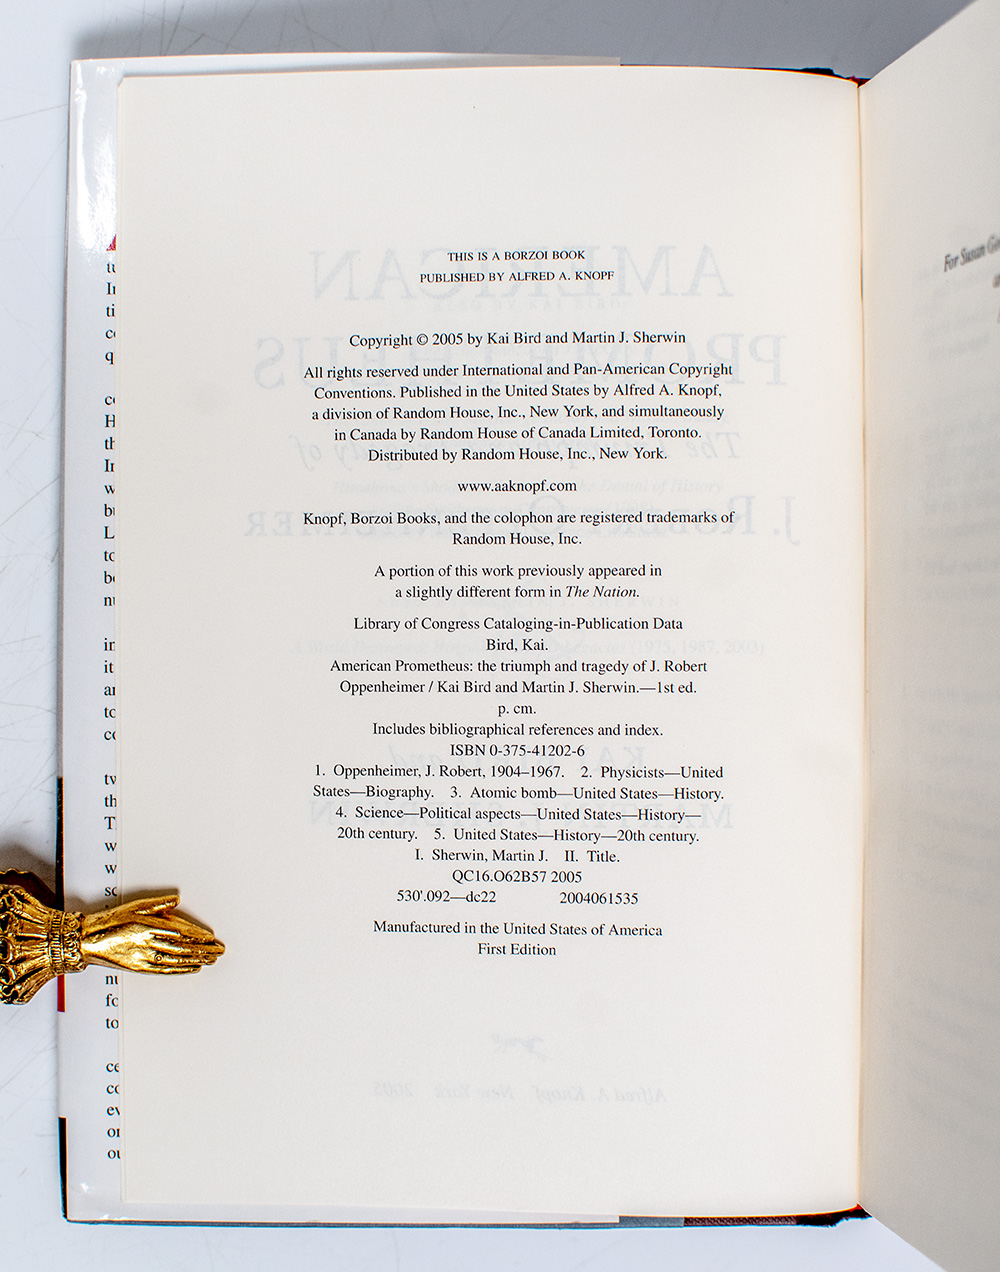 THIS IS A BORZOI BOOK
PUBLISHED BY ALFRED A. KNOPF
Copyright © 2005 by Kai Bird and Martin J. Sherwin
All rights reserved under International and Pan-American Copyright
Conventions. Published in the United States by Alfred A. Knopf,
a division of Random House, Inc., New York, and simultaneously
in Canada by Random House of Canada Limited, Toronto.
Distributed by Random House, Inc., New York.
www.aaknopf.com
Knopf, Borzoi Books, and the colophon are registered trademarks of
Random House, Inc.
A portion of this work previously appeared in
a slightly different form in The Nation.
Library of Congress Cataloging-in-Publication Data
Bird, Kai.
American Prometheus: the triumph and tragedy of J. Robert
Oppenheimer / Kai Bird and Martin J. Sherwin.—1st ed.
p. cm.
Includes bibliographical references and index.
ISBN 0-375-41202-6
1. Oppenheimer, J. Robert, 1904–1967. 2. Physicists—United
States—Biography. 3. Atomic bomb—United States—History.
4. Science—Political aspects—United States—History—
20th century. 5. United States—History—20th century.
I. Sherwin, Martin J. II. Title.
QC16.O62B57 2005
530'.092—dc22 2004061535
Manufactured in the United States of America
First Edition
For Susan